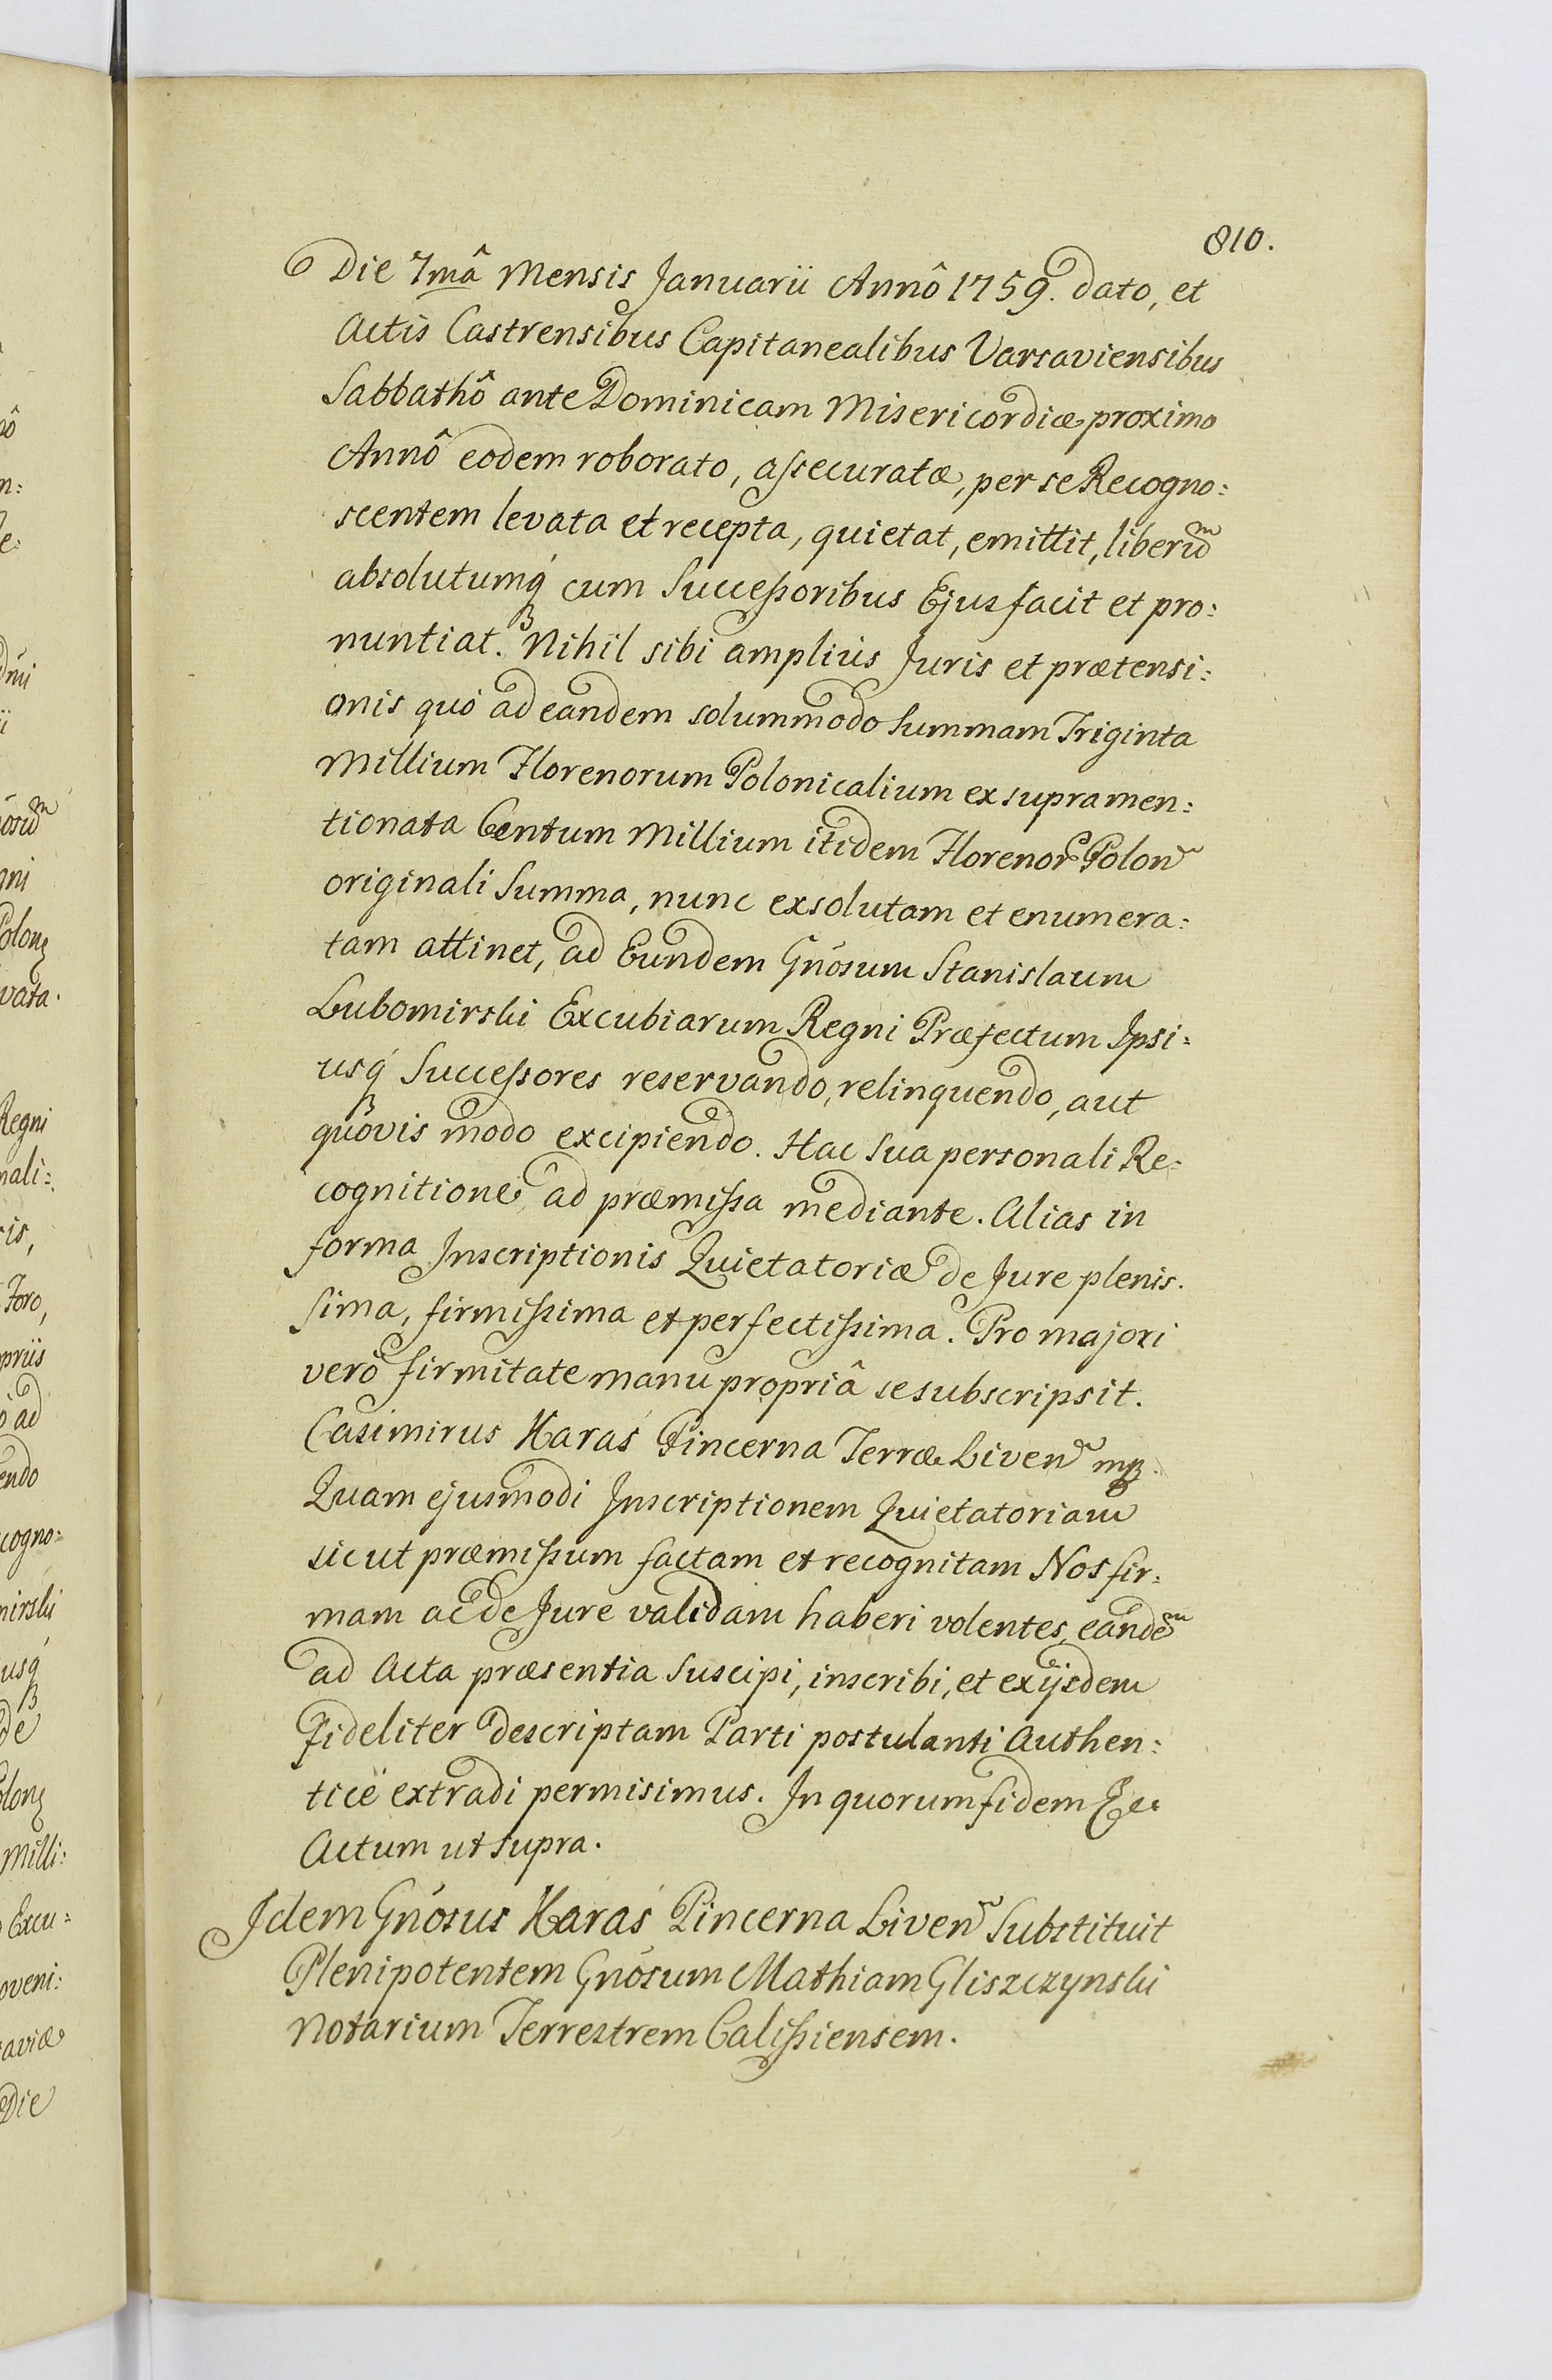 810.
Die 7mâ Mensis Januarii Annô 1759. dato, et
Actis Castrensibus Capitanealibus Varsaviensibus
Sabbathô ante Dominicam Misericordiæ proximo
Annô eodem roborato, assecuratæ, per se Recogno:
scentem levata et recepta, quietat, emittit, liberum
absolutumq́ cum Successoribus Ejus facit et pro:
nuntiat. Nihil sibi ampliùs Juris et prætensi:
onis quò ad eandem solummodo Summam Triginta
Millium Florenorum Polonicalium ex supramen:
tionata Centum Millium itidem Florenor Polon
originali Summa, nunc exsolutam et enumera:
tam attinet, ad Eundem Gnósum Stanislaum
Lubomirski Excubiarum Regni Præfectum Ipsi:
usq́ Successores reservando, relinquendo, aut
quôvis modo excipiendo. Hac Sua personali Re:
cognitione ad præmissa mediante. Alias in
forma Inscriptionis Quietatoriæ de Jure plenis.
sima, firmissima et perfectissima. Pro majori
verò firmitate manu propriâ se subscripsit.
Casimirus Karaś Pincerna Terræ Liven mp.
Quam ejusmodi Inscriptionem Quietatoriam
sicut præmissum factam et recognitam Nos fir:
mam ac de Jure validam haberi volentes, eandem
ad Acta præsentia Suscipi, inscribi, et ex ijsdem
fideliter descriptam Parti postulanti Authen:
ticè extradi permisimus. In quorum fidem &c
Actum ut supra.
Idem Gnósus Karaś Pincerna Liven Substituit
Plenipotentem Gnósum Mathiam Gliszczynski
Notarium Terrestrem Calissiensem.